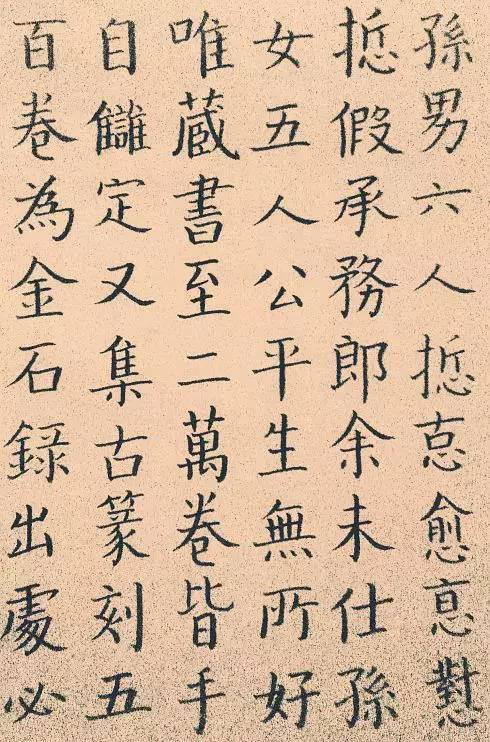 孫男六人悊愈懟
悊假承務郎余未仕孫
女五人公平生無所好
唯蔵書至二萬卷皆手
自讎定又集古篆刻五
百卷為金石録出處必